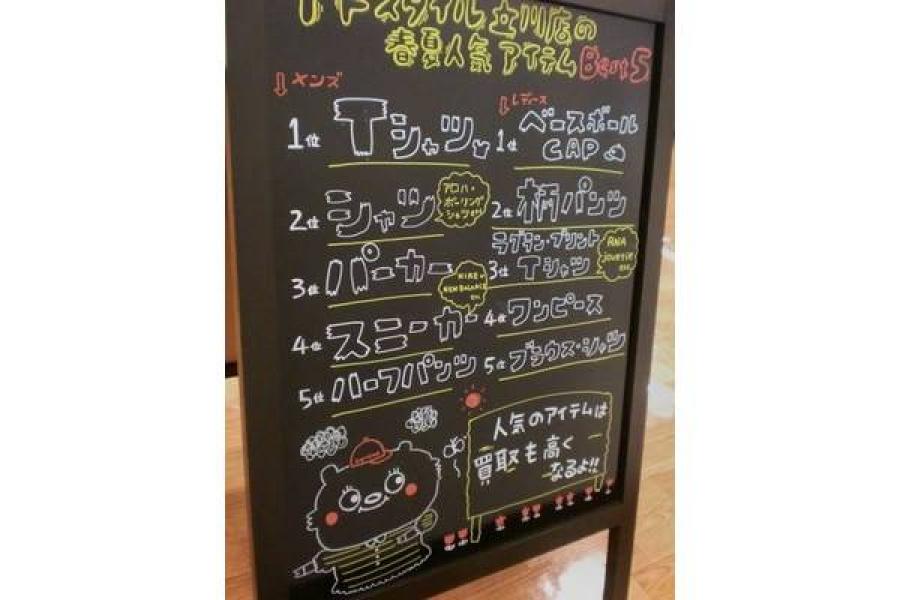 ドスタイル立川店の
春夏人気アイテムBest5
↓メンズ
1位 Tシャツ
2位 シャツ
アロハ・
ボーリング
シャツetc
3位 パーカー
4位 スニーカー
NIKEや
NEWBALANCE
etc
5位 ハーフパンツ
↓レディース
1位 ベースボール
CAP
2位 柄パンツ
3位 ラグラン・プリント
Tシャツ
RNA
jouetie
etc
4位 ワンピース
5位 ブラウス・シャツ
人気のアイテムは
買取も高く
なるよ!!